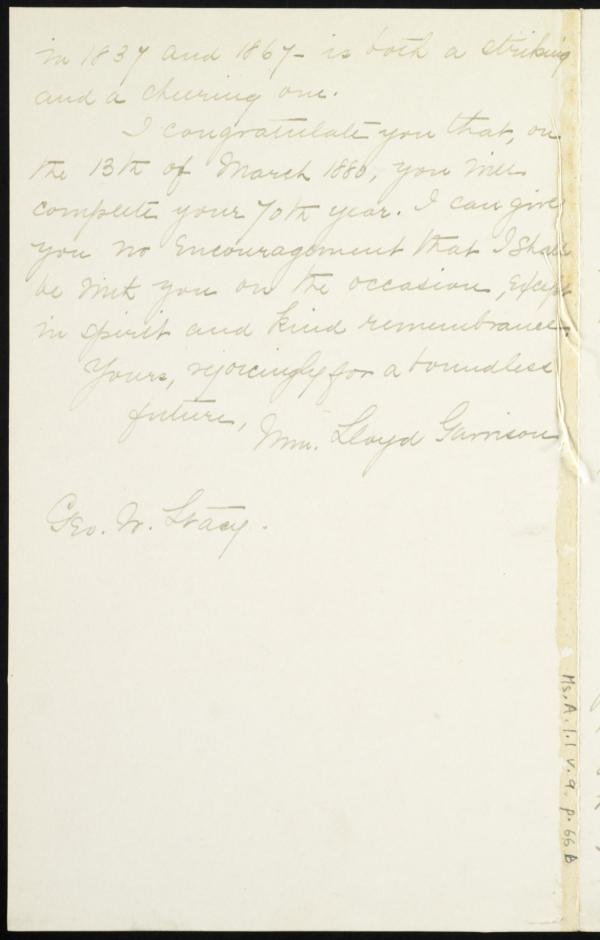 in 1837 and 1867 - is both a striking
and a cheering one.
I congratulate you that, on
the 13th of March 1880, you will
complete your 70th year. I can give
you no encouragement that I shall
be with you on the occasion, except
in spirit and kind remembrance.
Yours, rejoicingly for a boundless
future,
Wm. Lloyd Garrison
Geo. W. Stacy.
Ms. A. 1.1 v. 9. p. 66 B